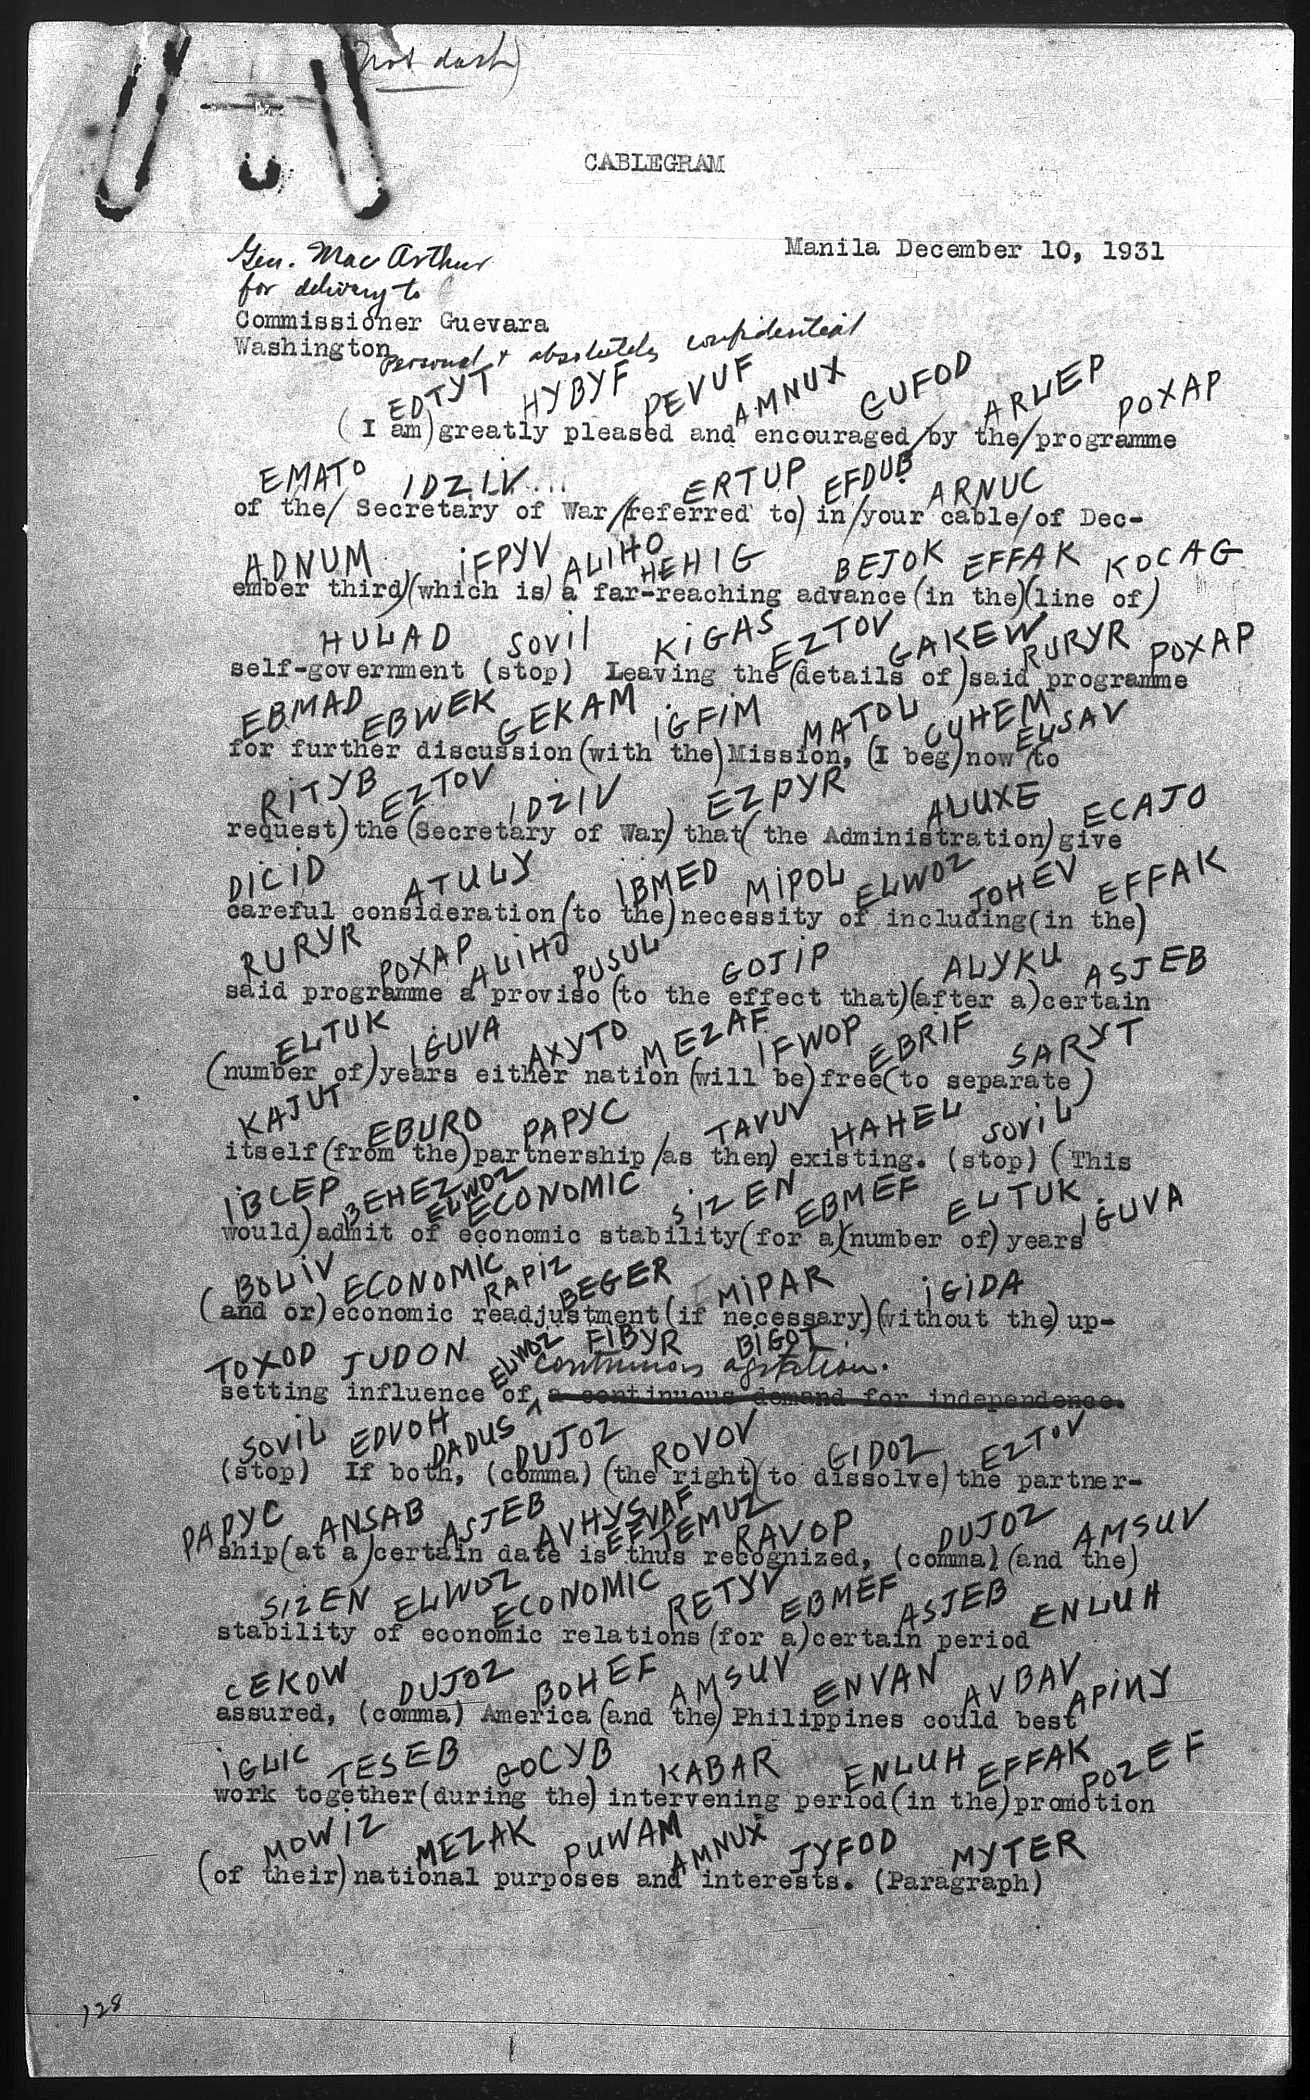 (not dash)
CABLEGRAM
Manila December 10, 1931
Gen. MacArthur
for delivery to
Commissioner Guevara
Washington
Personal & absolutely confidential
EDTYT HYBYF PEVUF AMNUX GUFOD ARLEP POXAP
(I am) greatly pleased and encouraged/by the/programme
EMATO IDZIV ERTUP EFDUB ARNUC
of the/ Secretary of War/(referred to) in/your cable/of Dec-
ADNUM IFPYV ALIHO HEHIG BEJOK EFFAK KOCAG
ember third)(which is) a far-reaching advance (in the)(line of)
HULAD SOVIL KIGAS EZTOV GAKEW RURYR POXAP
self-government (stop) Leaving the (details of) said programme
EBMAD EBWEK GEKAM IGFIM MATOL CUHEM ELSAV
for further discussion (with the) Mission, (I beg) now /to
RITYB EZTOV IDZIV EZPYR ALUXE ECAJO
request) the (Secretary of War) that( the Administration) give
DICID ATULY IBMED MIPOL ELWOZ JOHEV EFFAK
careful consideration (to the) necessity of including (in the)
RURYR POXAP ALIHO PUSUL GOJIP ALYKU ASJEB
said programme a proviso (to the effect that)(after a) certain
ELTUK IGUVA AXYTO MEZAF IFWOP EBRIF SARYT
(number of) years either nation (will be) free (to separate)
KAJUT EBURO PAPYC TAVUV HAHEL SOVIL
itself (from the) partnership /as then) existing. (stop) (This
IBCEP BEHEZ ELWOZ ECONOMIC SIZEN EBMEF ELTUK IGUVA
would) admit of economic stability (for a)(number of) years
BOLIV ECONOMIC RAPIZ BEGER MIPAR IGIDA
(and or) economic readjustment (if necessary) (without the) up-
TOXOD JUDON ELWOZ FIBYR BIGOT
continuous agitation.
setting influence of a continuous demand for independence.
SOVIL EDVOH DADUS DUJOZ ROVOV GIDOZ EZTOV
(stop) If both, (comma) (the right)(to dissolve) the partner-
PAPYC ANSAB ASJEB AVHYS EFVAF TEMUZ RAVOP DUJOZ AMSUV
ship (at a) certain date is thus recognized, (comma) (and the)
SIZEN ELWOZ ECONOMIC RETYV EBMEF ASJEB ENLUH
stability of economic relations (for a) certain period
CEKOW DUJOZ BOHEF AMSUV ENVAN AVBAV APINY
assured, (comma) America (and the) Philippines could best
IGLIC TESEB GOCYB KABAR ENLUH EFFAK POZEF
work together (during the) intervening period (in the) promotion
MOWIZ MEZAK PUWAM AMNUX JYFOD MYTER
(of their) national purposes and interests. (Paragraph)
128
1